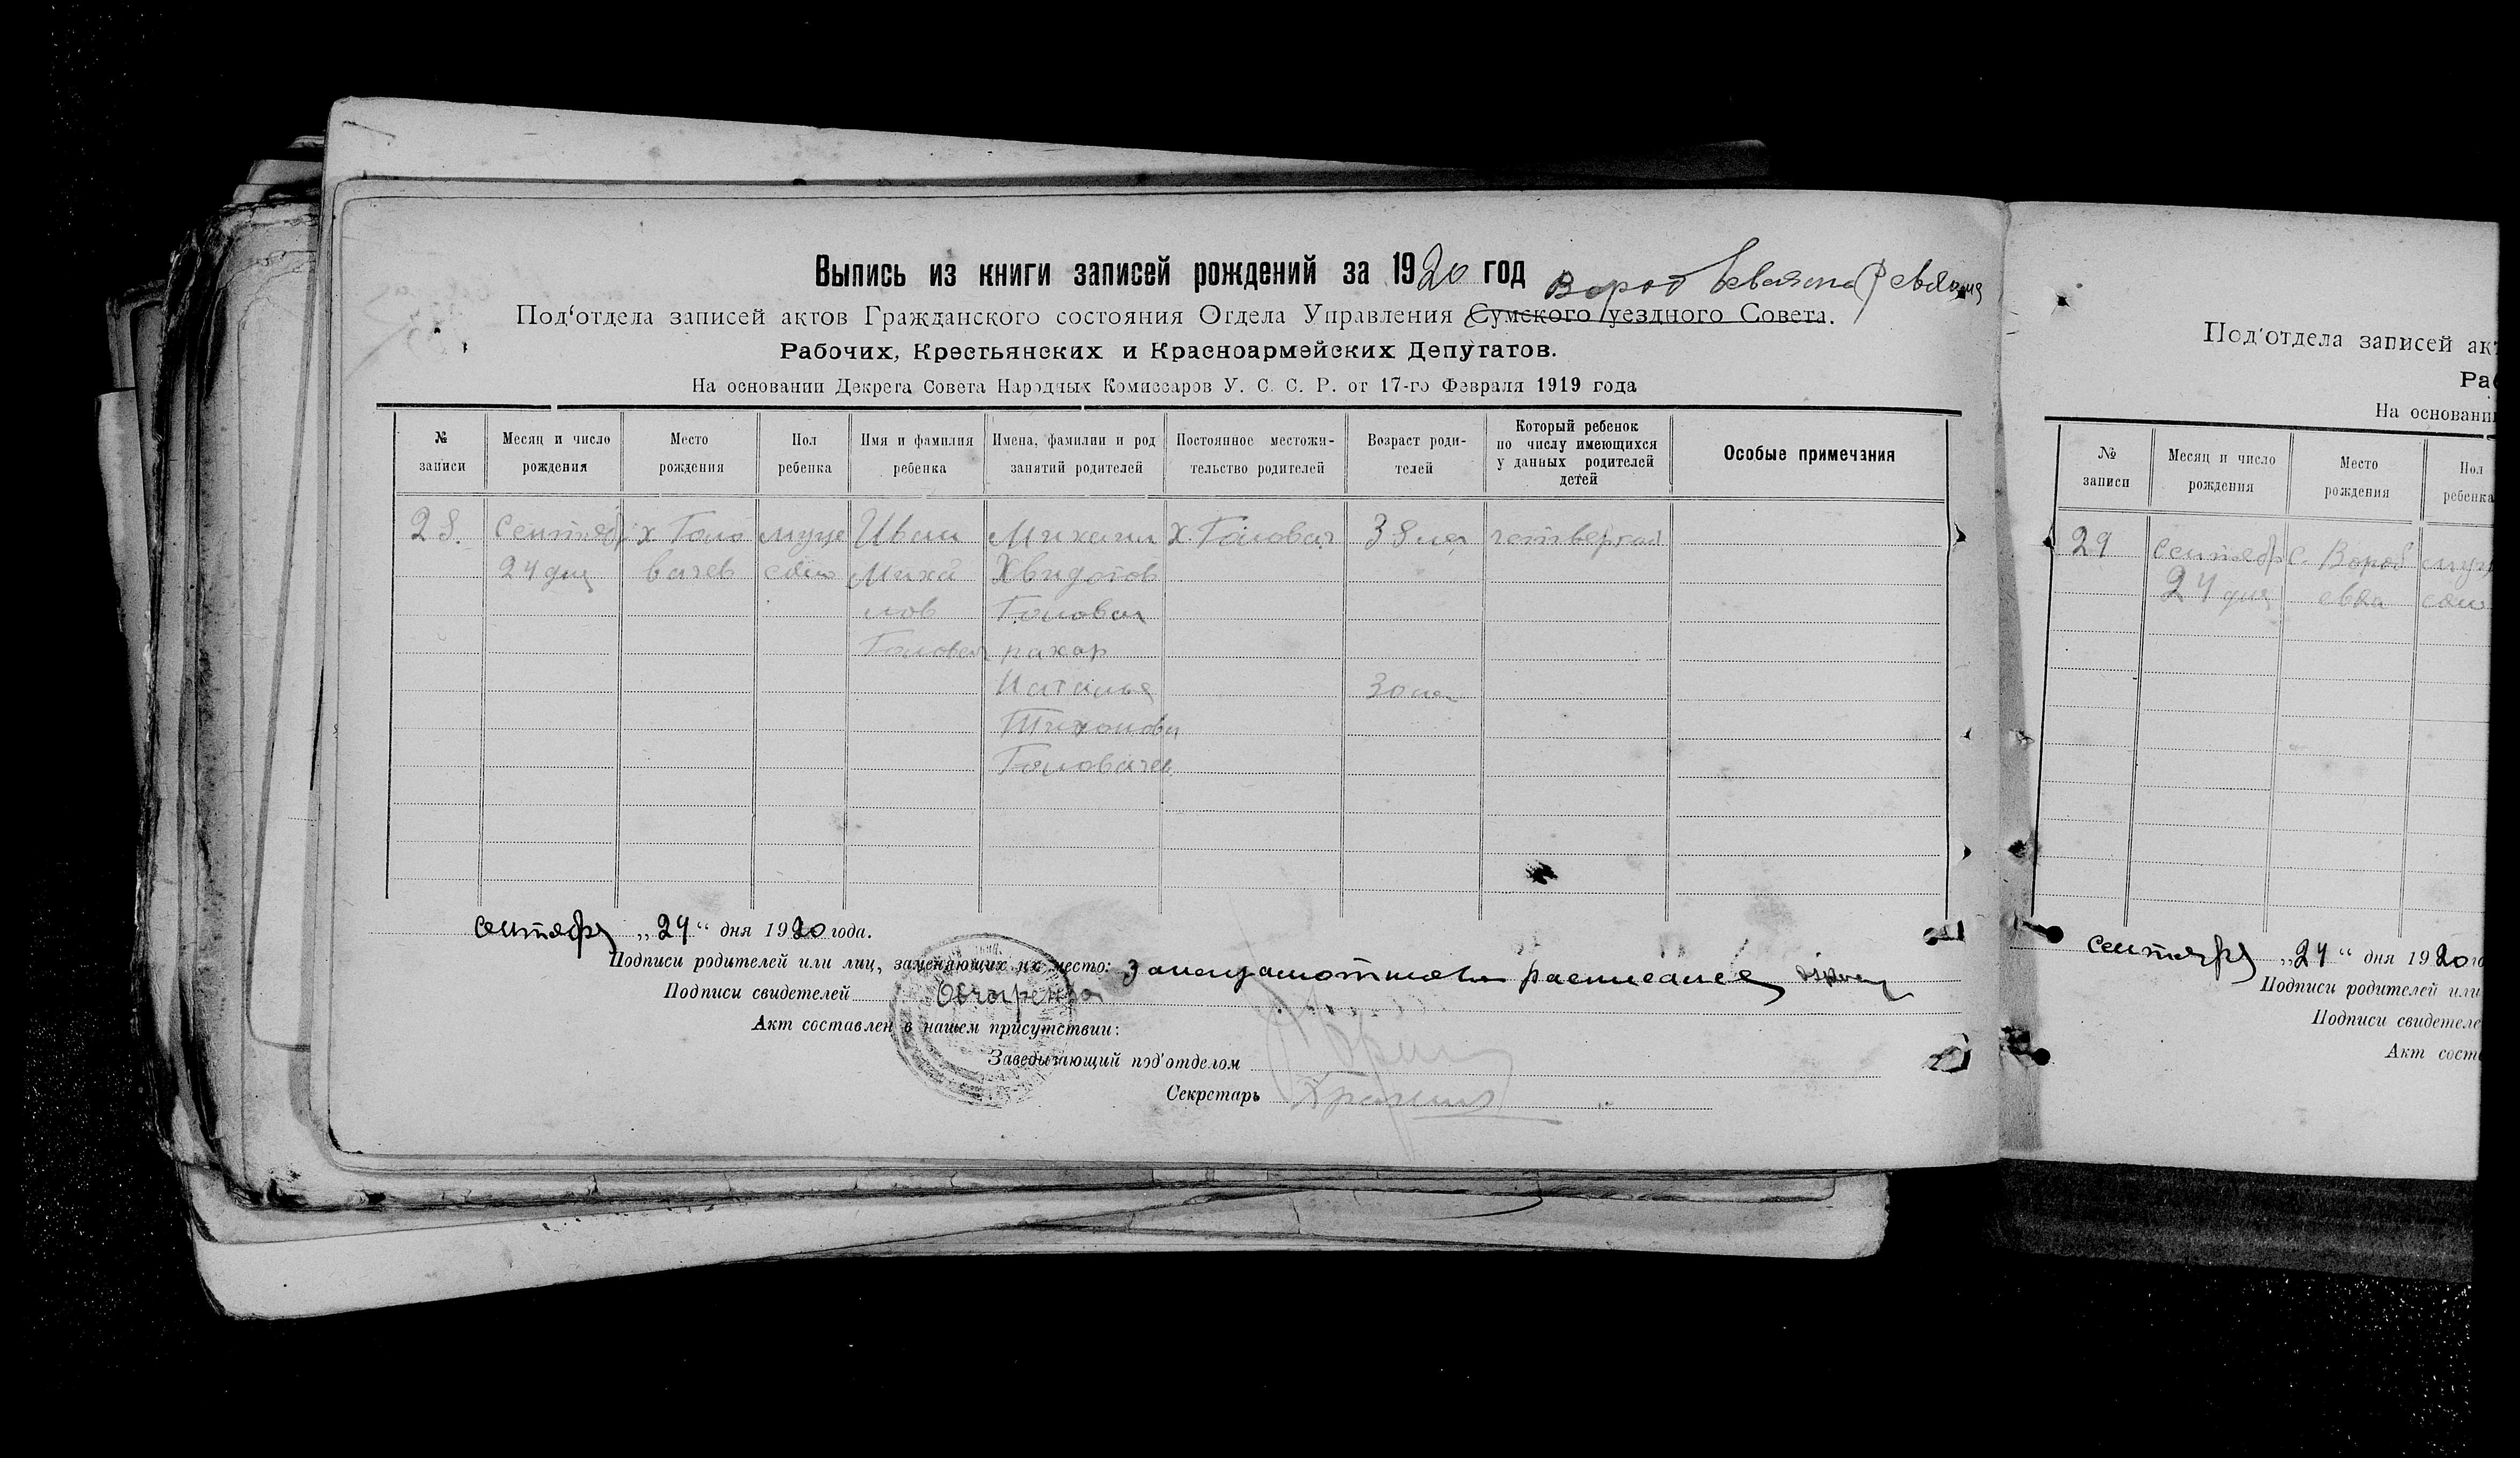 Выпись из книги записей рождений за 1920 год
Под‘отдела записей актов Гражданского состояния Отдела Управления Сумского уездного Совета.
Рабочих, Крестьянских и Красноармейских Депутатов.
На основании Декрета Совета Народных Комиссаров У. С. С. Р. от 17-го Февраля 1919 года
№ записи
Месяц и число рождения
Место рождения
Пол ребенка
Имя и фамилия ребенка
Имена, фамилии и род занятий родителей
Постоянное местожительство родителей
Возраст родителей
Который ребенок по числу имеющихся у данных родителей детей
Особые примечания
28. Сентябр х Голо муже Иван Михаил х. Головач 38 лет четвертай
24 дня вачев ском Миха Хвидотов
лов Головач
Головач пахар
Наталья 30 лет
Тихонова
Головачев
сентября „24“ дня 1920 года.
Подписи родителей или лиц, заменяющих их место:
Подписи свидетелей Овчаренко
Акт составлен в нашем присутствии:
Заведывающий под'отделом
Секретарь
Под'отдела записей ак
Ра
На основани
№ записи
Месяц и число рождения
Место рождения
Пол ребенка
29 Сентябр с. Вороб муж
24 дня евка ском
сентября „24“ дня 1920 го
Подписи родителей или
Подписи свидетеле
Акт сост